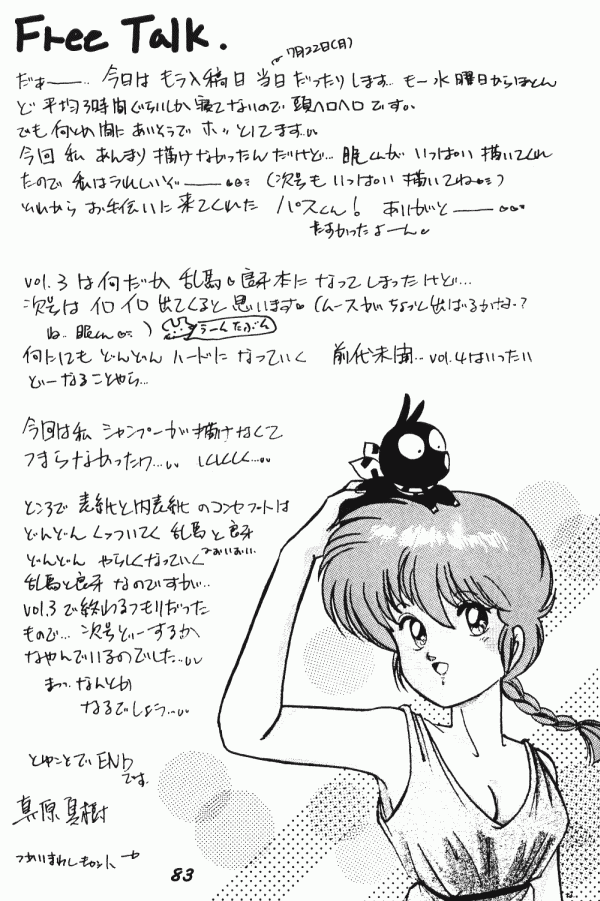 Free Talk.
7月22日(月)
だぁ――… 今日は もう入稿日 当日 だったりします… もー水曜日からほとん
ど 平均3時間ぐらいしか 寝てないので 頭ヘロヘロ です。
でも 何とか 間に あいそうで ホッ としてます…
今回 私 あんまり 描けなかったんだけど… 眠くんが いっぱい 描いてくれ
たので 私は うれしいぞ――… (次号も いっぱい 描いてね…)
それから お手伝いに 来てくれた パスくん! ありがと――…
たすかったよーん。
vol.3 は 何だか 乱馬 良牙本に なって しまったけど…
次号は イロイロ 出てくると 思います。(ムースが ちょっと 出ばるかな?
ね、眠くん…) うーん たぶん
何にしても どんどん ハードに なっていく 前代未聞… vol.4は いったい
どー なることやら…
今回は 私 シャンプーが 描けなくて
つまらなかったワ… しくしく…
ところで 表紙と内表紙 のコンセプトは
どんどん くっついてく 乱馬と良牙
どんどん やらしく なっていく
おいおい
乱馬と良牙 なのですが…
vol.3で終わるつもりだった
もので… 次号どーするか
なやんでいるのでした…
まっ、なんとか
なるでしょう…
とゆことで END
です。
真原真樹
83